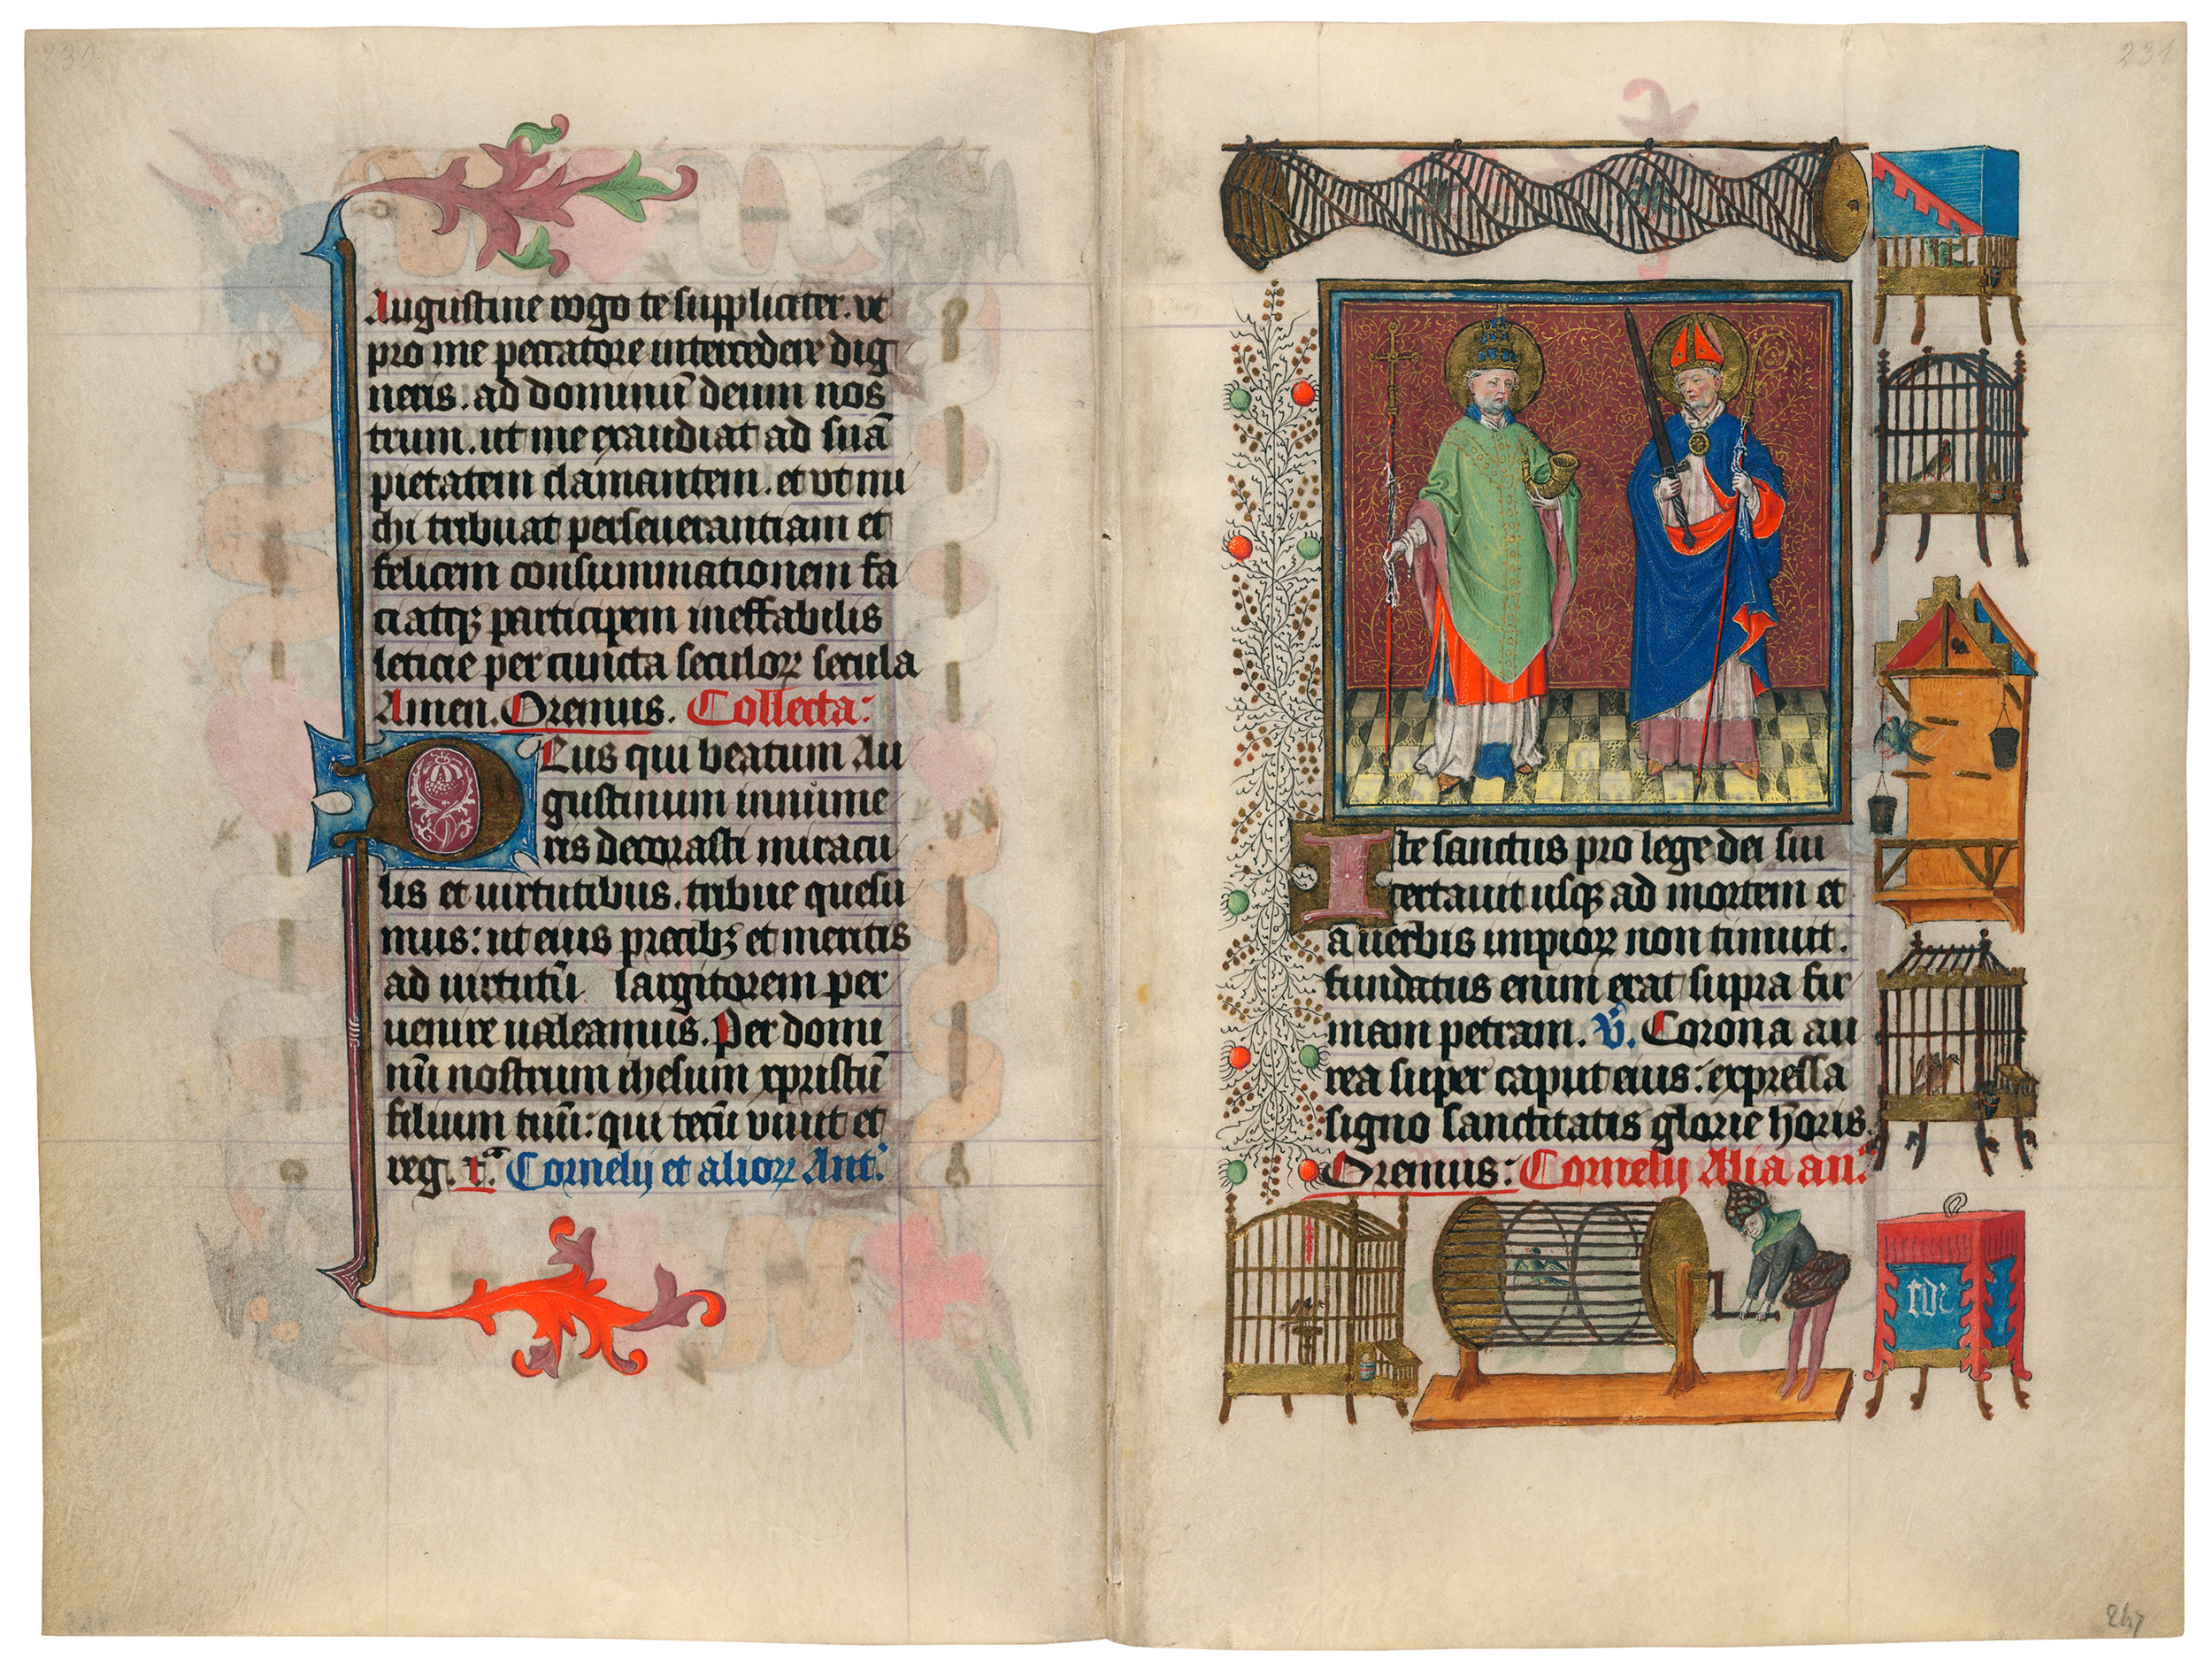 230
Augustine rogo te suppliciter. ut
pro me peccatore intercedere dig
neris. ad dominū deum nos
trum. ut me exaudiat ad suā
pietatem clamantem. et ut mi
chi tribuat perseuerantiam et
felicem consummationem fa
ciatqꝫ participem ineffabilis
leticie per cuncta seculoꝝ secula
Amen. Oremus. Collecta:
Deus qui beatum Au
gustinum innume
ris decorasti miracu
lis et uirtutibus. tribue quesu
mus: ut eius precibꝫ et meritis
ad uirtutū largitorem per
uenire ualeamus. Per domi
nū nostrum ihesum xpristū
filium tuū: qui tecū viuit et
reg. rͣ. Cornelij et alioꝝ Ant.
231
Iste sanctus pro lege dei sui
certauit usqꝫ ad mortem et
a uerbis impioꝝ non timuit.
fundatus enim erat supra fir
mam petram. V̊. Corona au
rea super caput eius: expressa
signo sanctitatis glorie horis
Oremus: Cornelij Alia an.
247